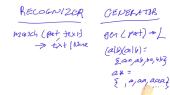 RECOGNIZER
match(pat, text)
→ text | None
GENERATOR
gen(pat) → L
(a|b)(a|b) =
{aa, ab, ba, bb}
a* =
{ , a, aa, aaa,